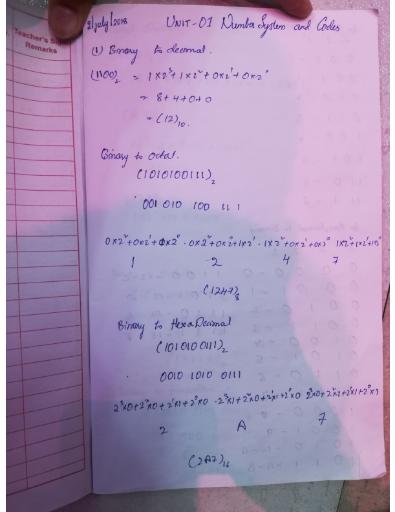 Teacher's S
Remarks
2/july/2018 UNIT-01 Number System and Codes
(1) Binary to decimal.
(1100)₂ = 1×2³+1×2²+0×2¹+0×2⁰
= 8+4+0+0
= (12)₁₀.
Binary to octal.
(1010100111)₂
001 010 100 111
0×2²+0×2¹+1×2⁰ · 0×2²+0×2⁰+1×2¹ · 1×2²+0×2¹+0×2⁰ 1×2²+1×2¹+1×2⁰
1 2 4 7
(1247)₈
Binary to HexaDecimal
(1010100111)₂
0010 1010 0111
2³×0+2²×0+2¹×1+2⁰×0 ·2³×1+2²×0+2¹×1+2⁰×0 2³×0+2²×1+2¹×1+2⁰×1
2 A 7
(2A7)₁₆